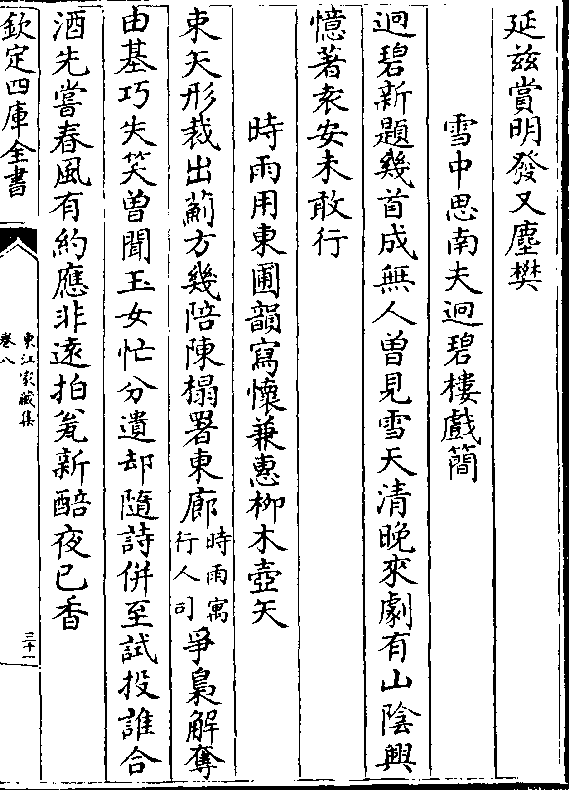 延兹賞明發又塵樊
雪中思南夫迥碧樓戲簡
迥碧新題幾首成無人曽見雪天清晚來劇有山陰興
憶著袁安未敢行
時雨用東圃韻寫懷兼惠柳木壺矢
束矢形裁出蒯方幾陪陳榻署東廊時雨寓行人司爭梟解奪
由基巧失笑曽聞玉女忙分遺却隨詩併至試投誰合
酒先嘗春風有約應非遠拍瓮新醅夜已香
欽定四庫全書
東江家藏集
卷八
三十一